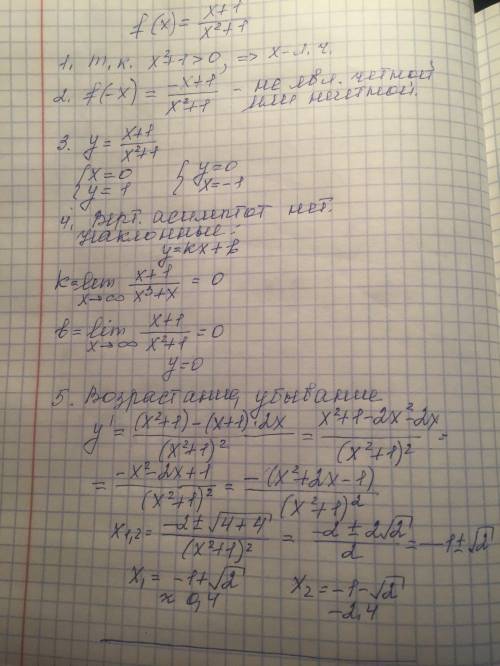 f(x) = \frac{x+1}{x^2+1}
1. т.к. x^2+1>0, => x-л.ч.
2. f(-x) = \frac{-x+1}{x^2+1} - не явл. четной
или нечетной.
3. y = \frac{x+1}{x^2+1}
{x=0 {y=0
{y=1 {x=-1
4. Верт. асимптот нет.
Наклонные:
y=kx+b
k=lim_{x→∞} \frac{x+1}{x^3+x} = 0
b=lim_{x→∞} \frac{x+1}{x^2+1} = 0
y=0
5. Возрастание, убывание
y' = \frac{(x^2+1)-(x+1)·2x}{(x^2+1)^2} = \frac{x^2+1-2x^2-2x}{(x^2+1)^2} =
= \frac{-x^2-2x+1}{(x^2+1)^2} = \frac{-(x^2+2x-1)}{(x^2+1)^2}
x_{1,2} = \frac{-2±\sqrt{4+4}}{(x^2+1)^2} = \frac{-2±2\sqrt{2}}{2} = -1±\sqrt{2}
x_1 = -1+\sqrt{2} x_2 = -1-\sqrt{2}
≈ 0,4 -2,4